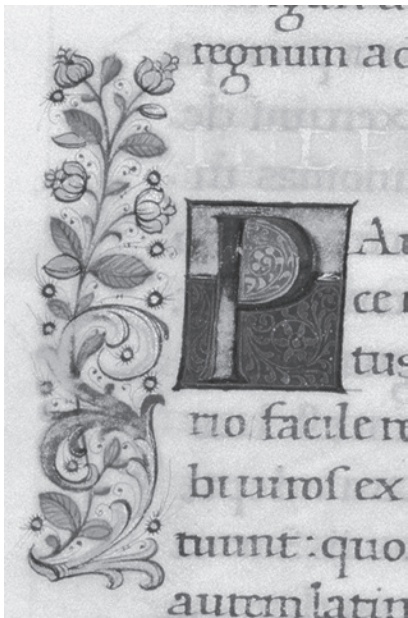 regnum a
PAu
ce
tus
rio facile re
bi uiroſ ex
tuunt: quo
autem latin